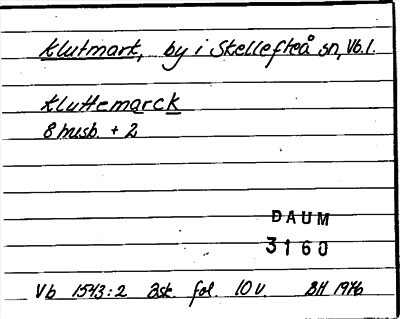 Klutmark, by i Skellefteå sn, Vb.l.
Kluttemarck
8 husb. + 2
DAUM
3160
Vb 1543:2 Äsk. fol. 10 v. BH 1976